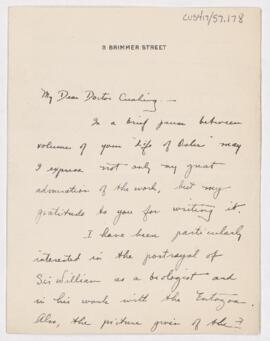 CUS417/57.178
3 BRIMMER STREET
My Dear Doctor Cushing —
In a brief pause between
volumes of your "Life of Osler" may
I express not only my great
admiration of the work, but my
gratitude to you for writing it.
I have been particularly
interested in the portrayal of
Sir William as a biologist and
in his work with the Entozoa.
Also, the picture given of the